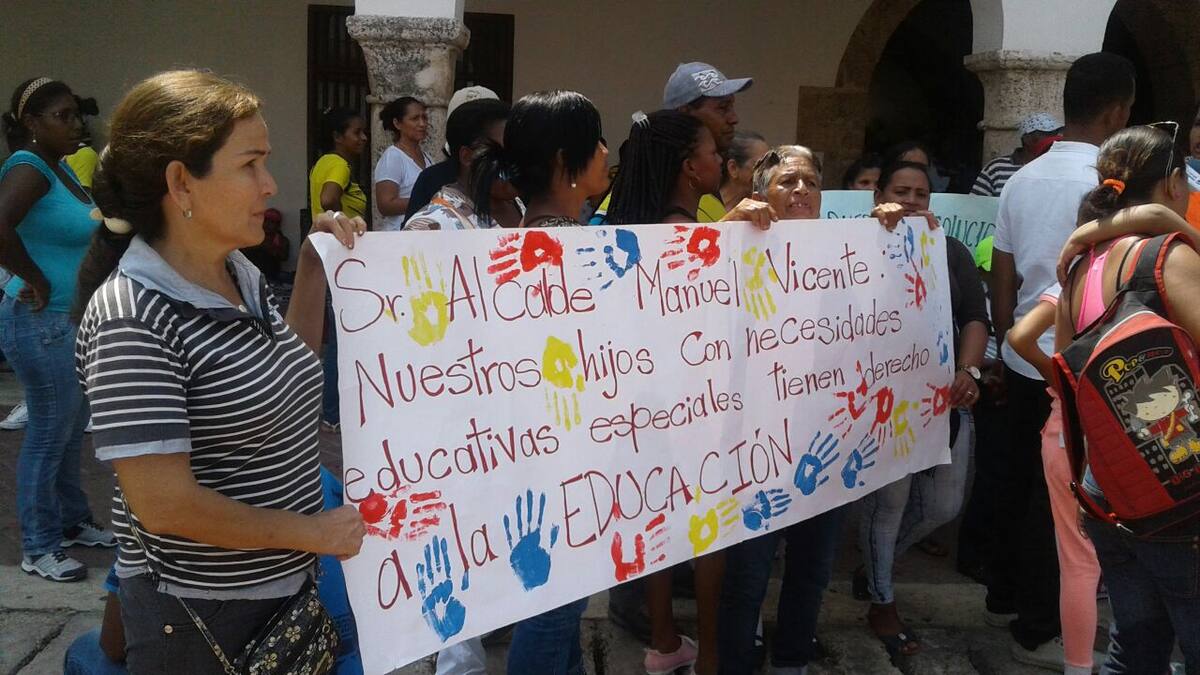 Sr. Alcalde Manuel Vicente.
Nuestros hijos con necesidades
educativas especiales tienen derecho
a la EDUCACIÓN